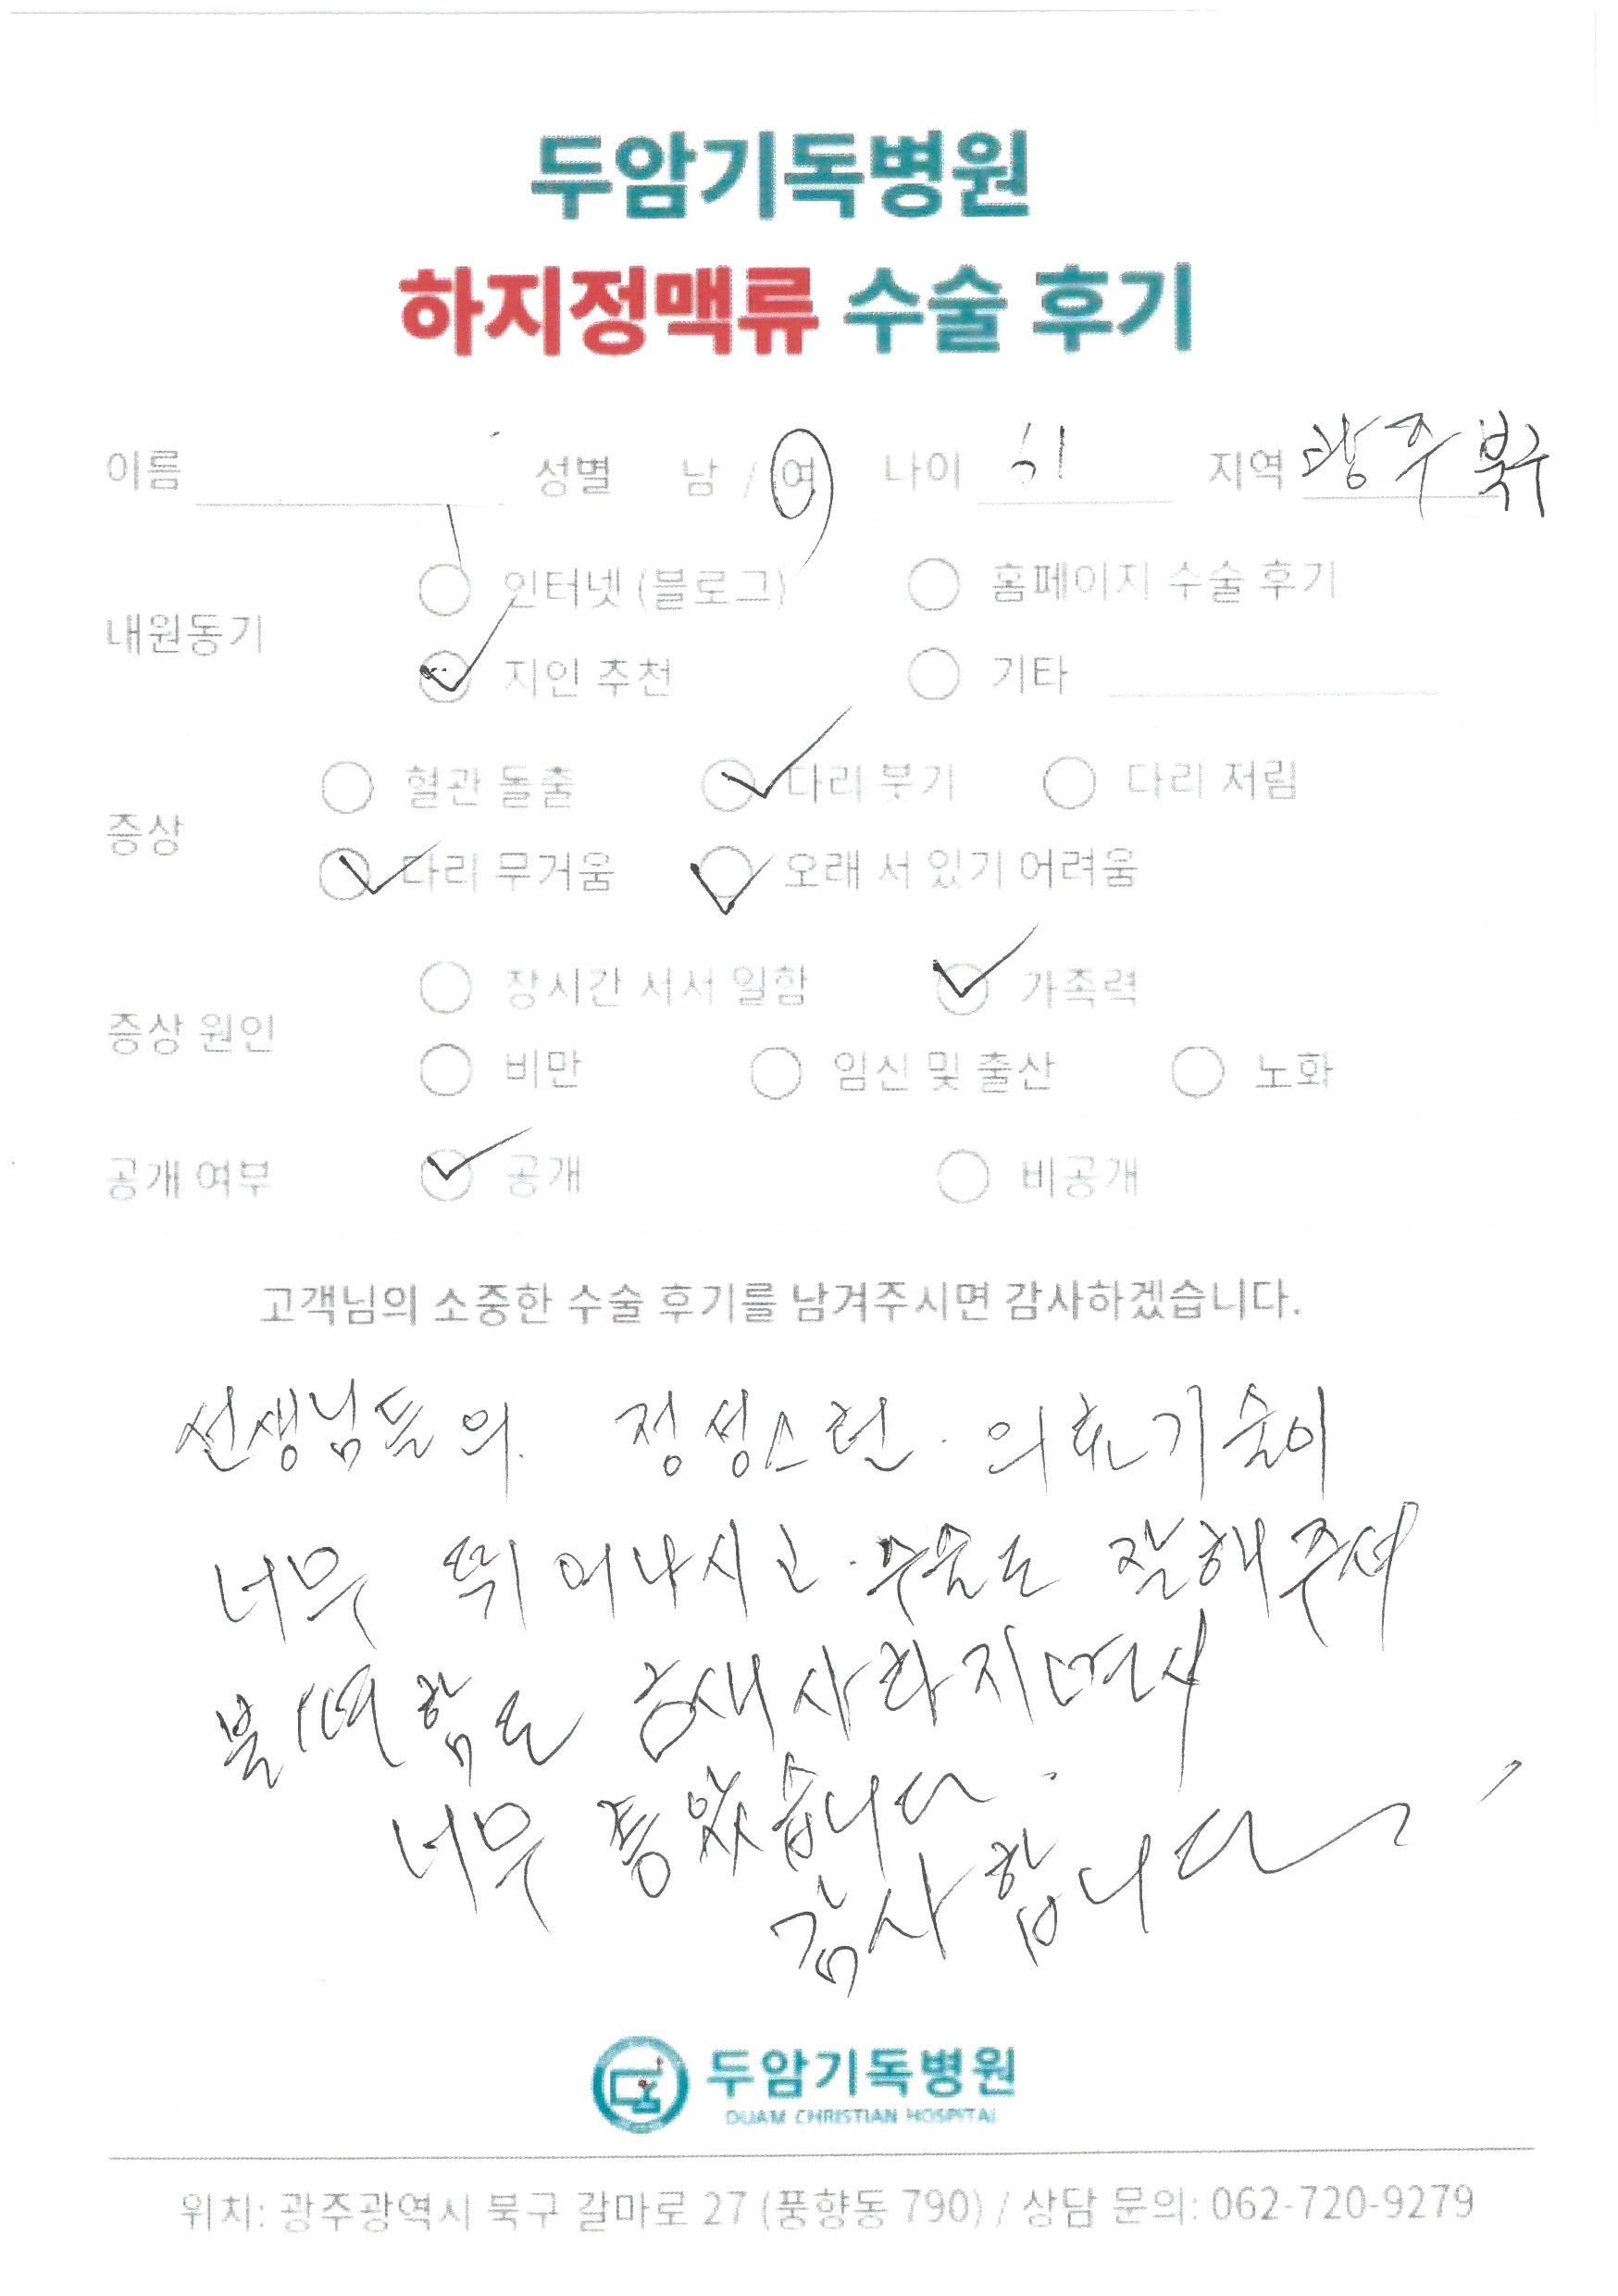 두암기독병원
하지정맥류 수술 후기
이름 성별 남 / 여 나이 지역 광주 북구
내원동기 인터넷 (블로그) 홈페이지 수술 후기
지인 추천 기타
증상 혈관 돌출 다리 붓기 다리 저림
다리 무거움 오래 서 있기 어려움
증상 원인 장시간 서서 일함 가족력
비만 임신 및 출산 노화
공개 여부 공개 비공개
고객님의 소중한 수술 후기를 남겨주시면 감사하겠습니다.
선생님들의 정성스런 의료기술이
너무 뛰어나시고 수술도 잘해주셔
불편함도 금새 사라지면서
너무 좋았습니다.
감사합니다
두암기독병원
DUAM CHRISTIAN HOSPITAL
위치: 광주광역시 북구 갈마로 27 (풍향동 790) / 상담 문의: 062-720-9279